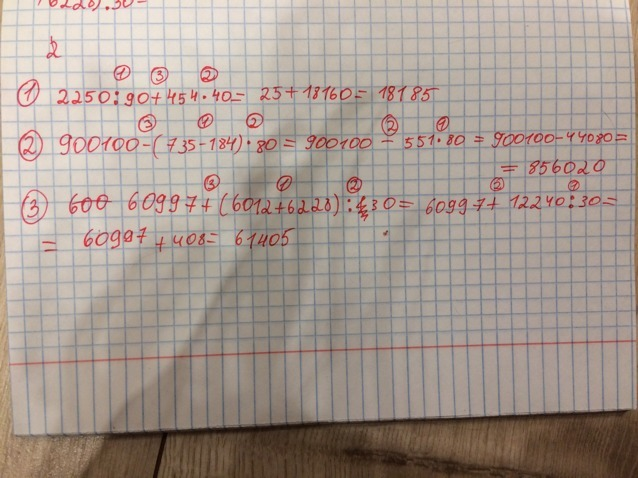 6228):30=
2
① 2250:90+454·40= 25+18160= 18185
② 900100-(735-184)·80 = 900100 - 551·80 = 900100-44080=
= 856020
③ 600 60997+(6012+6228):30= 60997+12240:30=
= 60997+408= 61405